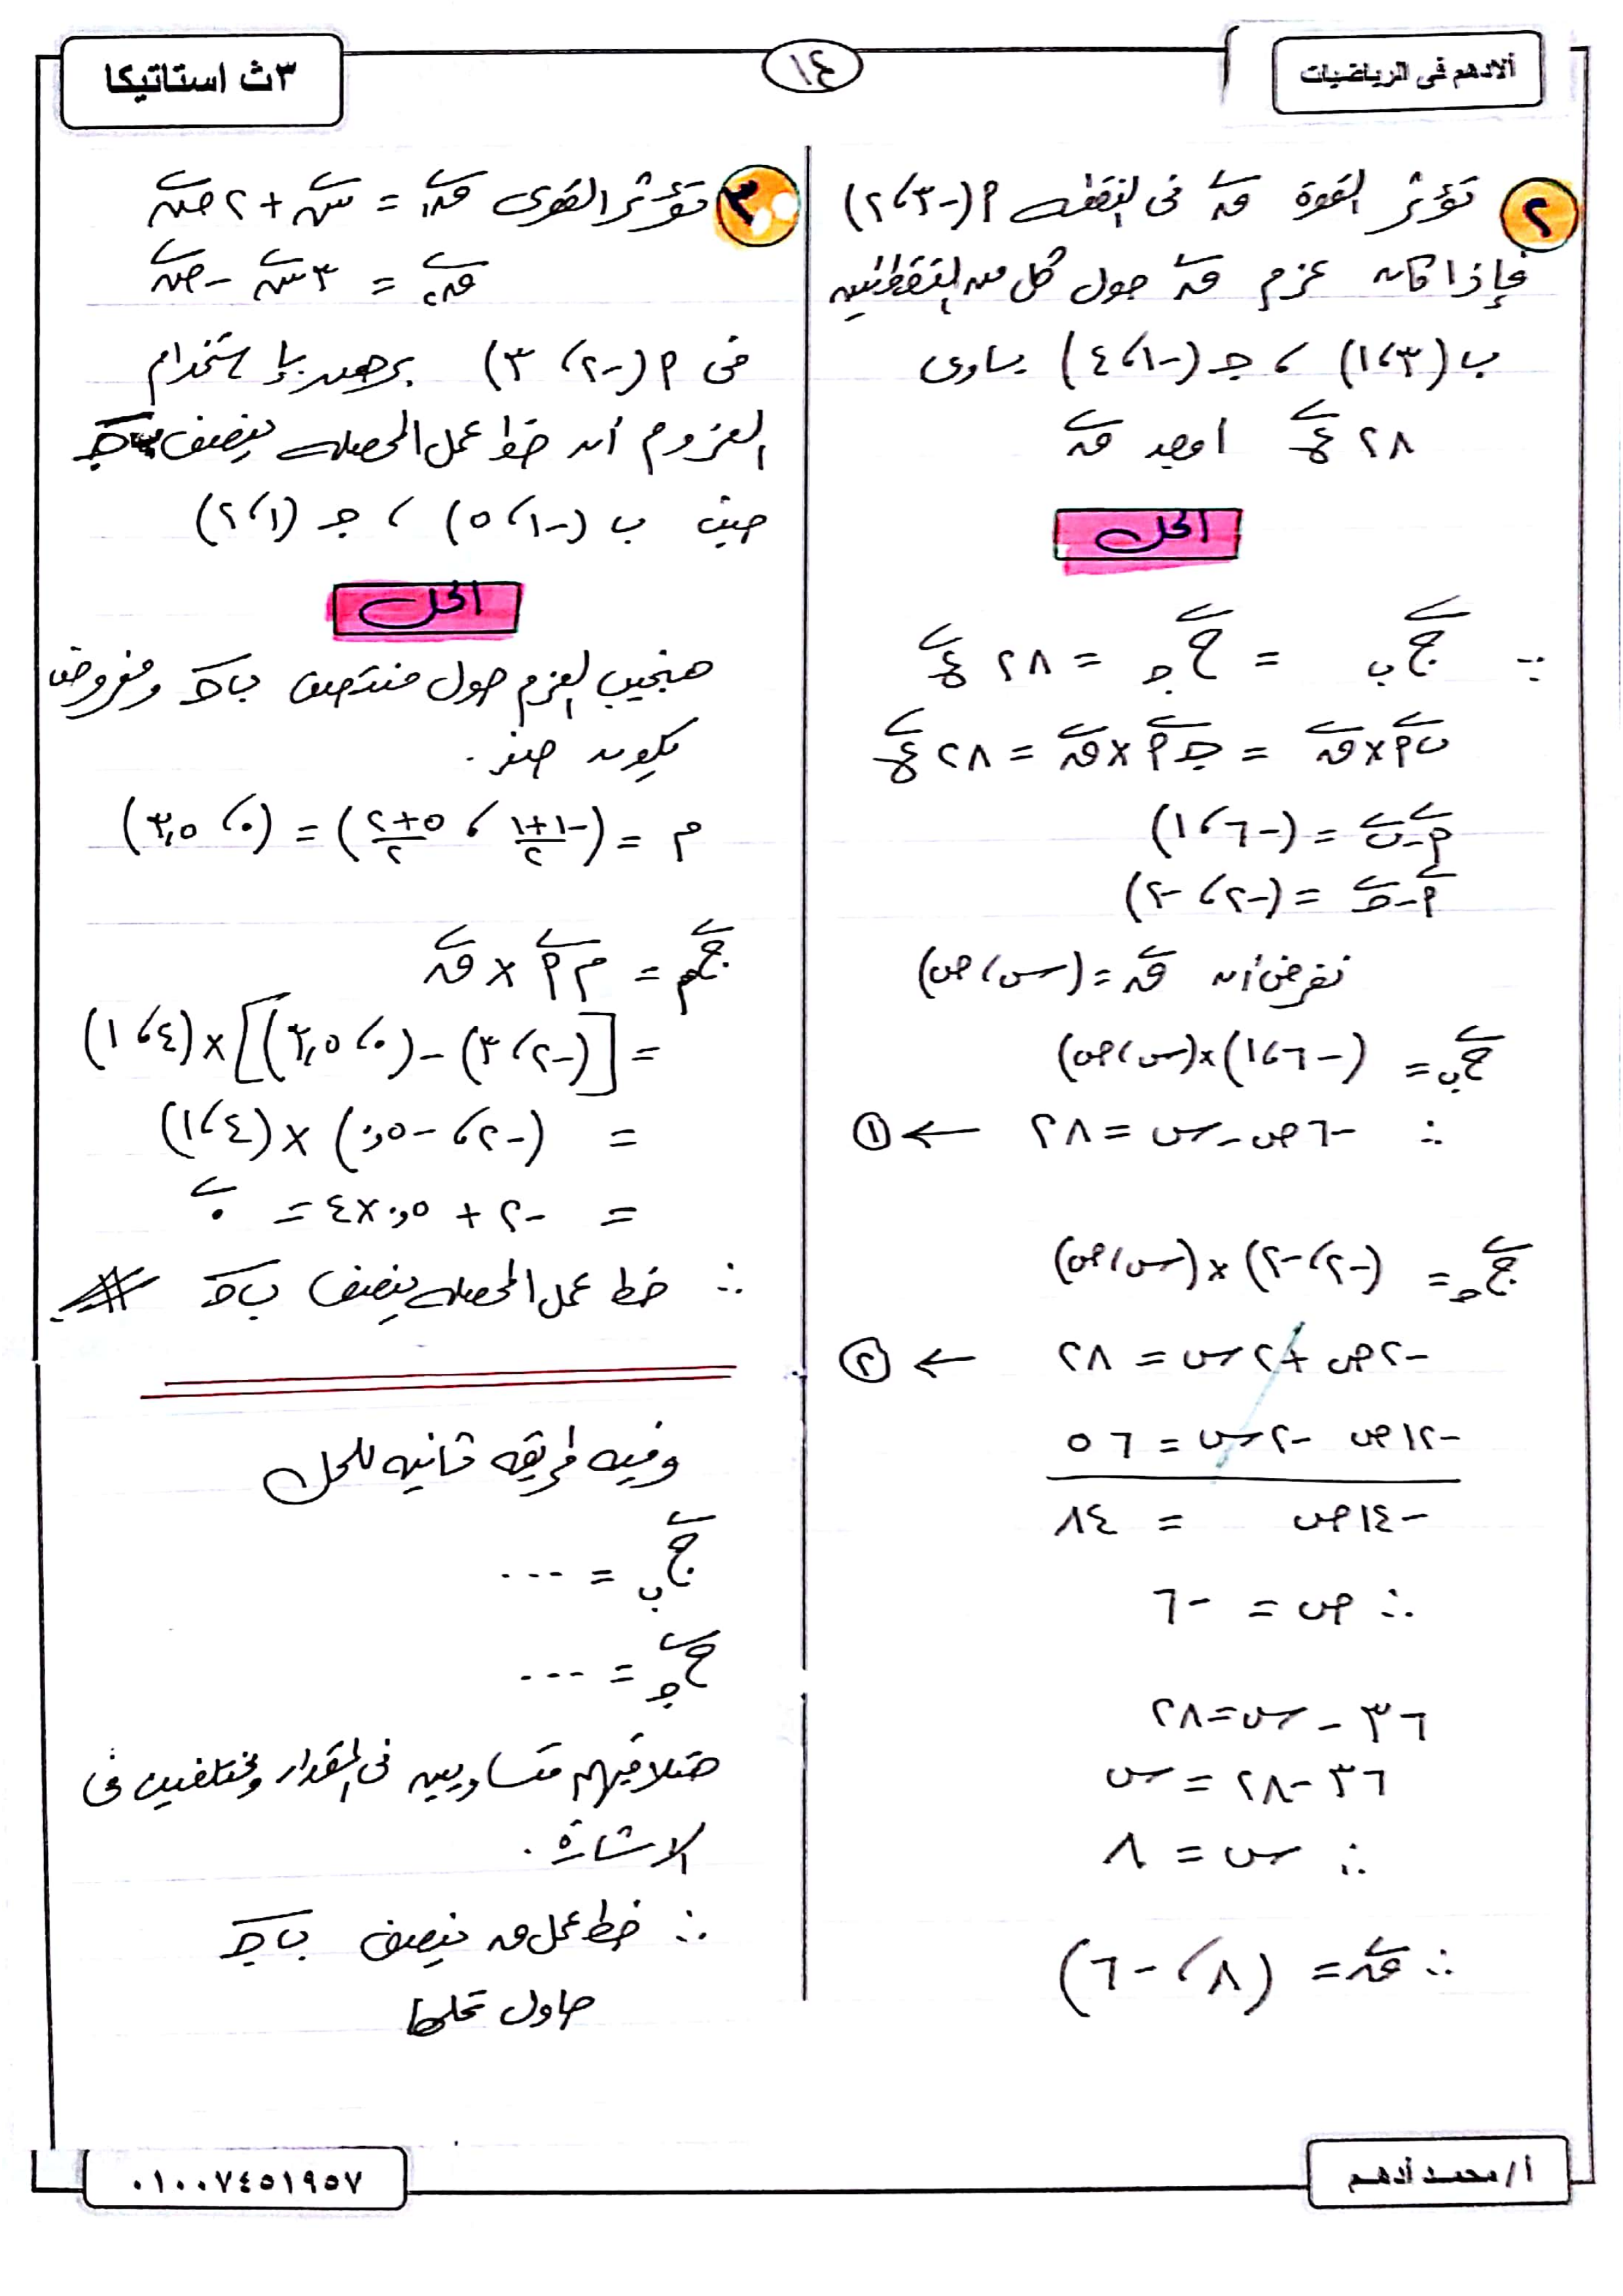 ألادهم فى الرياضيات
١٤
٣ث استاتيكا
٢ تؤثر القوة ق فى النقطه م (-٣، ٢)
فإذا كان عزم ق حول كل من النقطتين
ب (٣، ١) ، جـ (-١، ٤) يساوى
٢٨ ع اوجد ق
الحل
∵ ج ب = ج جـ = ٢٨ ع
ب م × ق = جـ م × ق = ٢٨ ع
م - ب = (-٦، ١)
م - جـ = (-٢، -٢)
نفرض أن ق = (س، ص)
ج ب = (-٦، ١) × (س، ص)
∴ -٦ص - س = ٢٨ ← ①
ج جـ = (-٢، -٢) × (س، ص)
-٢ص + ٢س = ٢٨ ← ②
-١٢ص -٢س = ٥٦
-١٤ص = ٨٤
∴ ص = -٦
٣٦ - س = ٢٨
٣٦ - ٢٨ = س
∴ س = ٨
∴ ق = (٨، -٦)
٣ تؤثر القوى ق١ = س + ٢ ص
ق٢ = ٣ س - ص
فى م (-٢، ٣) برهن بإستخدام
العزوم أن خط عمل المحصله ينصف ب جـ
حيث ب (-١، ٥) ، جـ (١، ٢)
الحل
هنجيب العزم حول منتصف ب جـ ومفروض
يكون صفر .
م = (-١+١/٢ ، ٥+٢/٢) = (٠، ٣,٥)
ج م = م م × ق
= [(-٢، ٣) - (٠، ٣,٥)] × (٤، ١)
= (-٢، -٠,٥) × (٤، ١)
= -٢ + ٠,٥ × ٤ = ٠
∴ خط عمل المحصله ينصف ب جـ #
وفيه طريقه ثانيه للحل
ج ب = ...
ج جـ = ...
هتلاقيهم متساويين فى المقدار ومختلفين فى
الاشارة .
∴ خط عمل ق ينصف ب جـ
حاول تحلها
أ/ محمد أدهم
٠١٠٠٧٤٥١٩٥٧